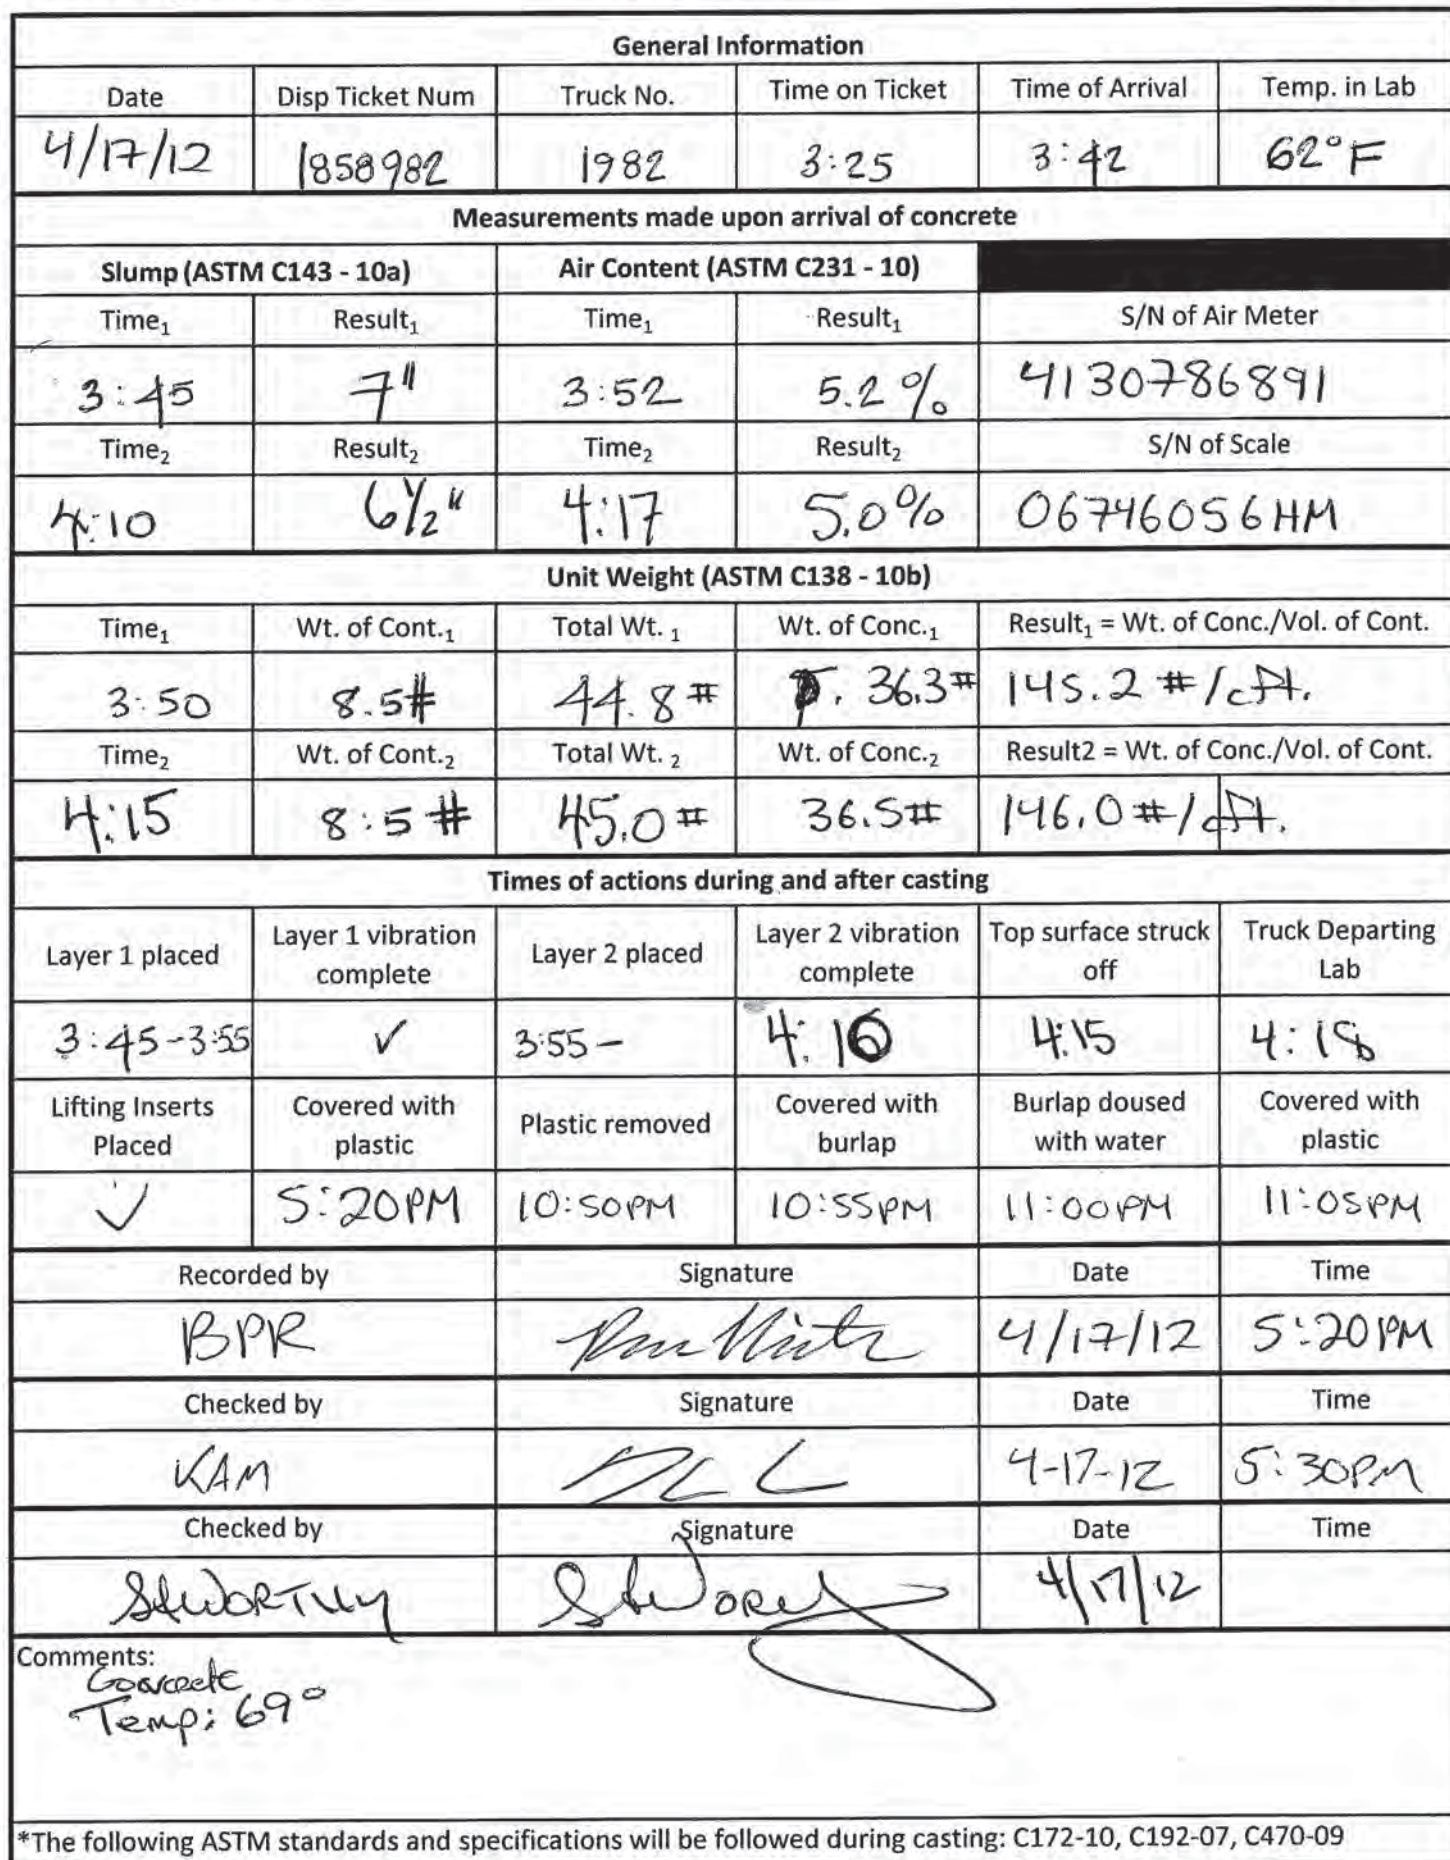 General Information
Date Disp Ticket Num Truck No. Time on Ticket Time of Arrival Temp. in Lab
4/17/12 1858982 1982 3:25 3:42 62°F
Measurements made upon arrival of concrete
Slump (ASTM C143 - 10a) Air Content (ASTM C231 - 10)
Time₁ Result₁ Time₁ Result₁ S/N of Air Meter
3:45 7" 3:52 5.2% 4130786891
Time₂ Result₂ Time₂ Result₂ S/N of Scale
4:10 6½" 4:17 5.0% 06746056HM
Unit Weight (ASTM C138 - 10b)
Time₁ Wt. of Cont.₁ Total Wt. ₁ Wt. of Conc.₁ Result₁ = Wt. of Conc./Vol. of Cont.
3:50 8.5# 44.8# 36.3# 145.2 #/cft.
Time₂ Wt. of Cont.₂ Total Wt. ₂ Wt. of Conc.₂ Result2 = Wt. of Conc./Vol. of Cont.
4:15 8:5# 45.0# 36.5# 146.0 #/cft.
Times of actions during and after casting
Layer 1 placed Layer 1 vibration complete Layer 2 placed Layer 2 vibration complete Top surface struck off Truck Departing Lab
3:45-3:55 ✓ 3:55 - 4:16 4:15 4:18
Lifting Inserts Placed Covered with plastic Plastic removed Covered with burlap Burlap doused with water Covered with plastic
✓ 5:20PM 10:50PM 10:55PM 11:00PM 11:05PM
Recorded by Signature Date Time
BPR 4/17/12 5:20PM
Checked by Signature Date Time
KAM 4-17-12 5:30PM
Checked by Signature Date Time
4/17/12
Comments:
Concrete
Temp: 69°
*The following ASTM standards and specifications will be followed during casting: C172-10, C192-07, C470-09